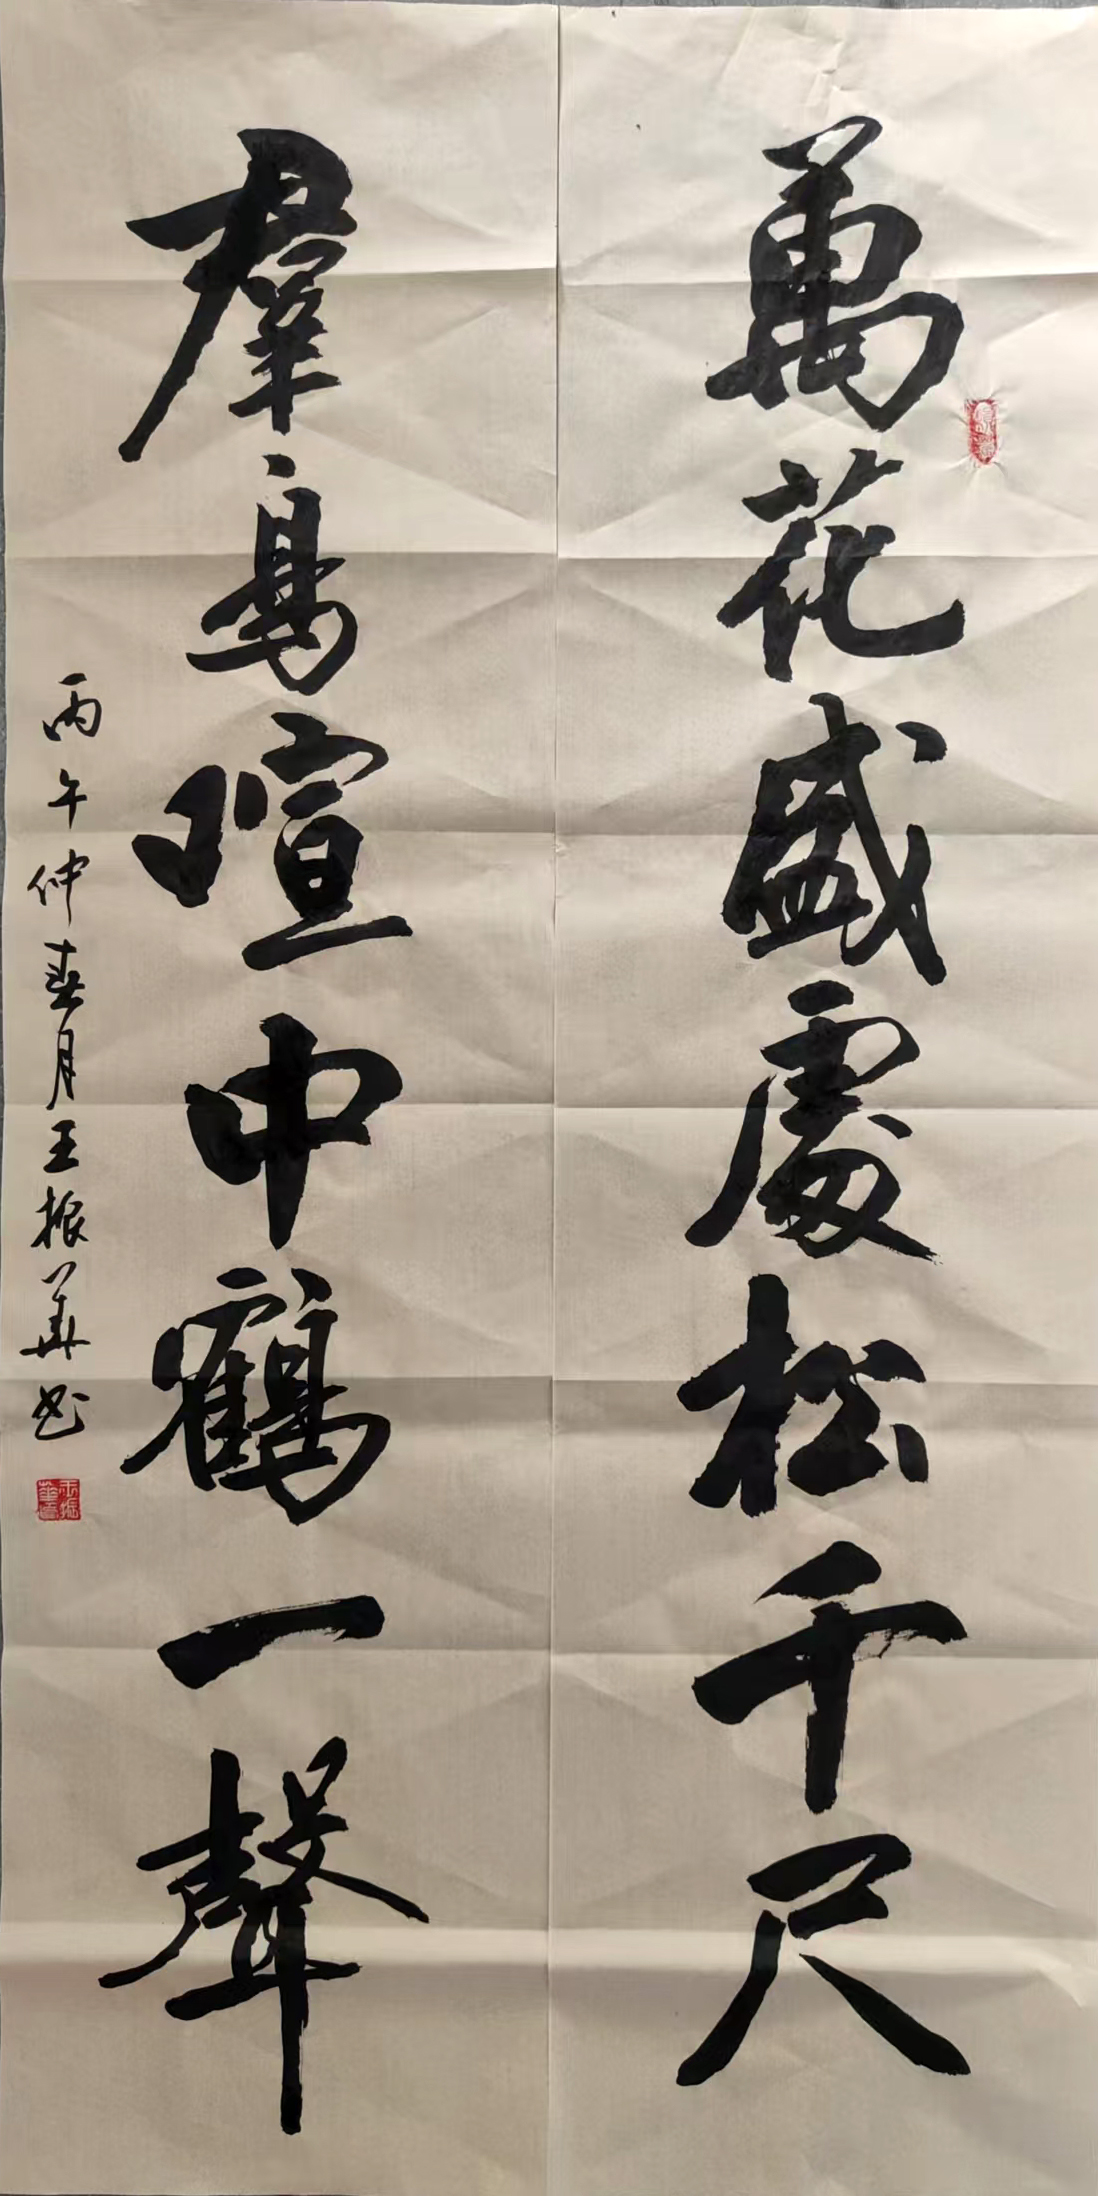 萬花盛處松千尺
羣鳥喧中鶴一聲
丙午仲春月王振華書